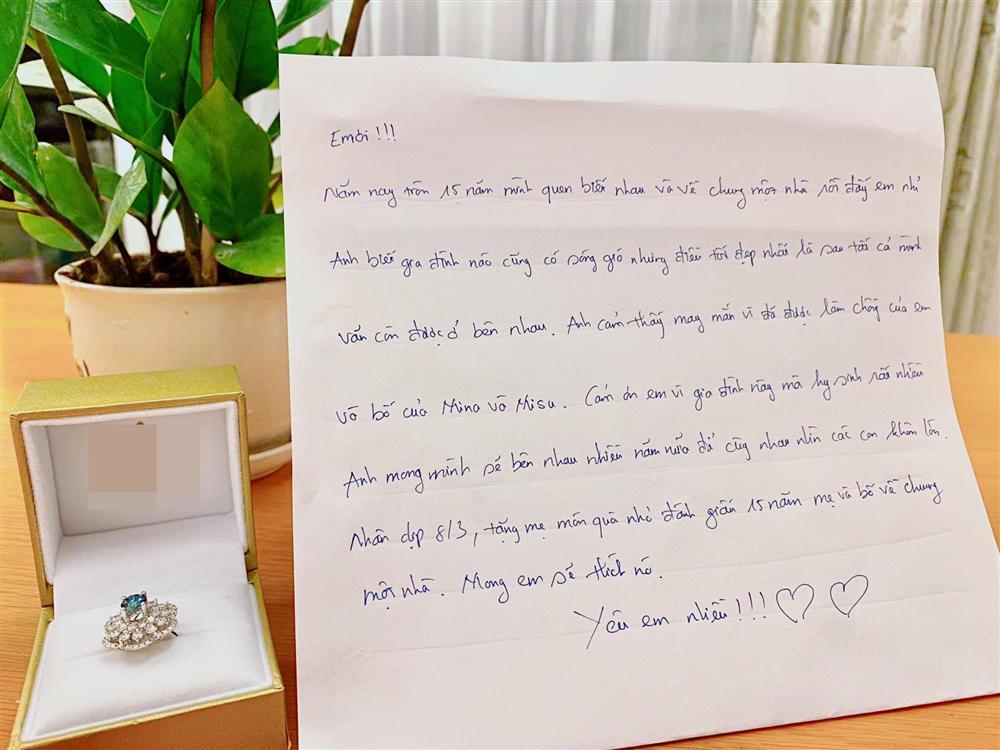 Em ơi !!!
Năm nay tròn 15 năm mình quen biết nhau và về chung một nhà rồi đấy em nhỉ
Anh biết gia đình nào cũng có sóng gió nhưng điều tốt đẹp nhất là sau tất cả mình
vẫn còn được ở bên nhau. Anh cảm thấy may mắn vì đã được làm chồng của em
và bố của Mina và Misu. Cảm ơn em vì gia đình này mà hy sinh rất nhiều
Anh mong mình sẽ bên nhau nhiều năm nữa để cùng nhau nhìn các con khôn lớn.
Nhân dịp 8/3, tặng mẹ món quà nhỏ đánh giấu 15 năm mẹ và bố về chung
một nhà. Mong em sẽ thích nó.
Yêu em nhiều!!! ♡ ♡